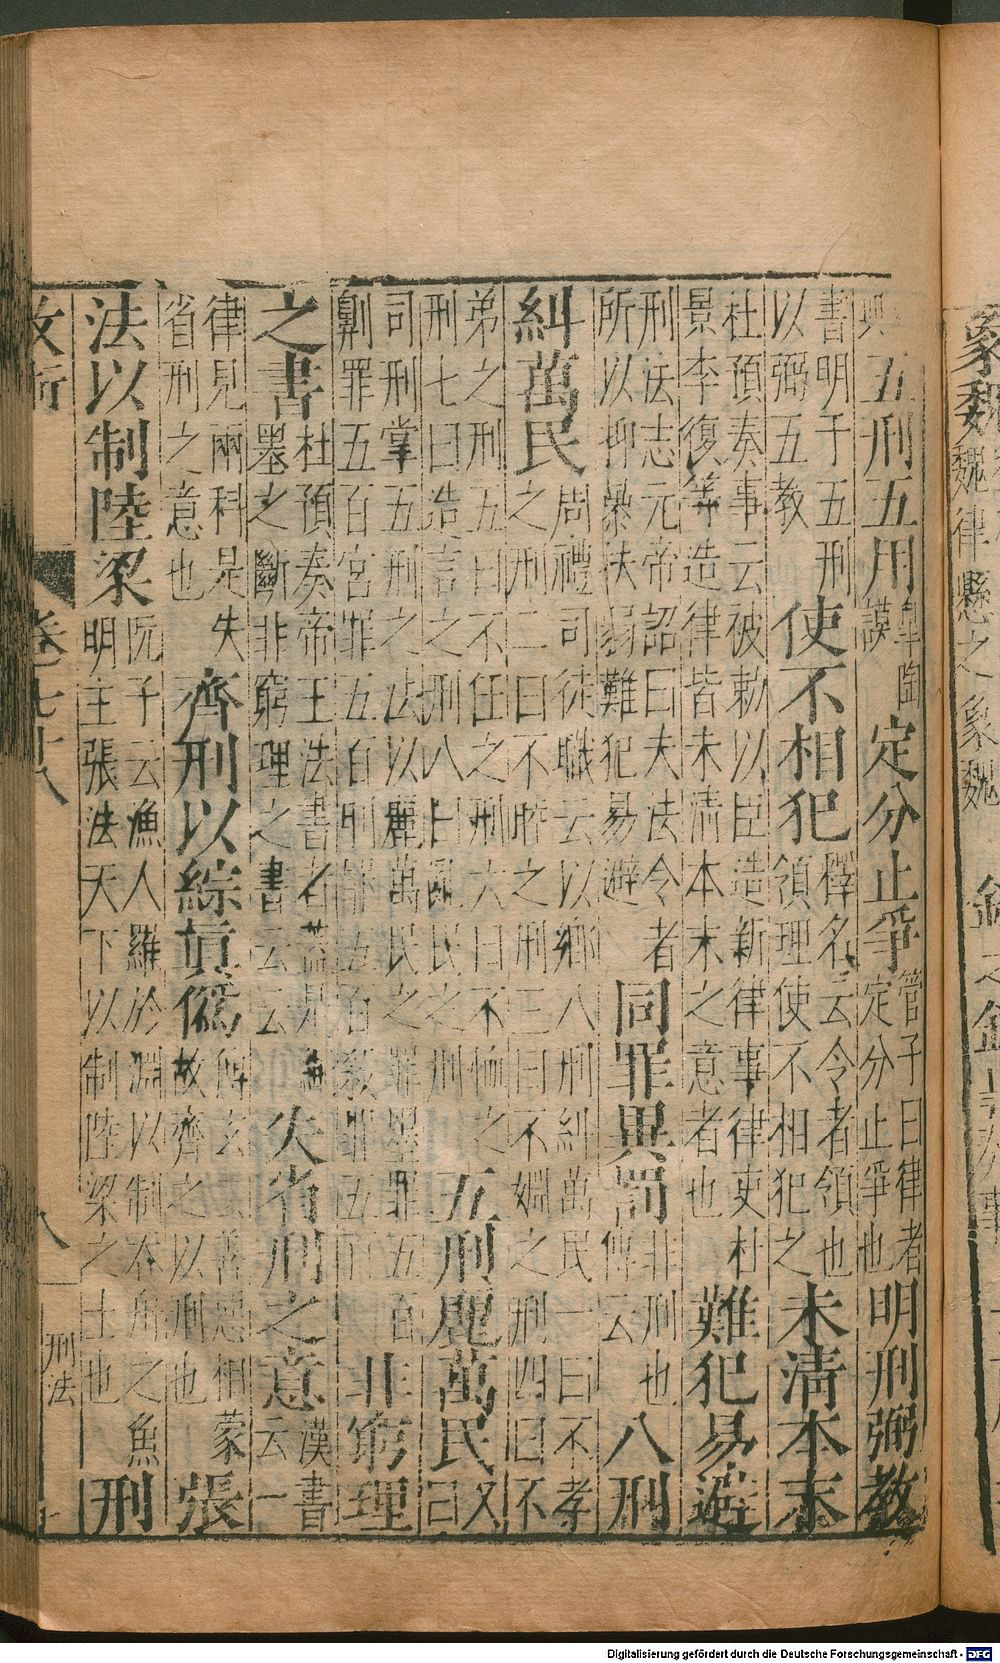 五刑五用皋陶謨定分止爭管子曰律者定分止爭也明刑弼教
書明于五刑以弼五教使不相犯釋名云令者領也領理使不相犯之未清本末
杜預奏事云被勅以臣造新律事律吏杜景李復等造律皆未清本末之意者也難犯易避
刑法志元帝詔曰夫法令者所以抑暴扶弱難犯易避同罪異罰傳云非刑也八刑
糾萬民周禮司徒職云以鄉八刑糾萬民一曰不孝之刑二曰不睦之刑三曰不婣之刑四曰不
弟之刑五曰不任之刑六曰不恤之刑七曰造言之刑八曰亂民之刑五刑麗萬民又曰
司刑掌五刑之法以麗萬民之罪墨罪五百劓罪五百宮罪五百刖罪五百殺罪五百非窮理
之書杜預奏帝王法書者蓋是繩墨之斷非窮理之書云云失省刑之意漢書云一
律見兩科是失省刑之意也齊刑以綜真僞善惡相蒙故齊之以刑也張
法以制陸梁阮子云漁人羅於淵以制吞舟之魚明主張法天下以制陸梁之士也刑
卷七十八
八
刑法
Digitalisierung gefördert durch die Deutsche Forschungsgemeinschaft - DFG